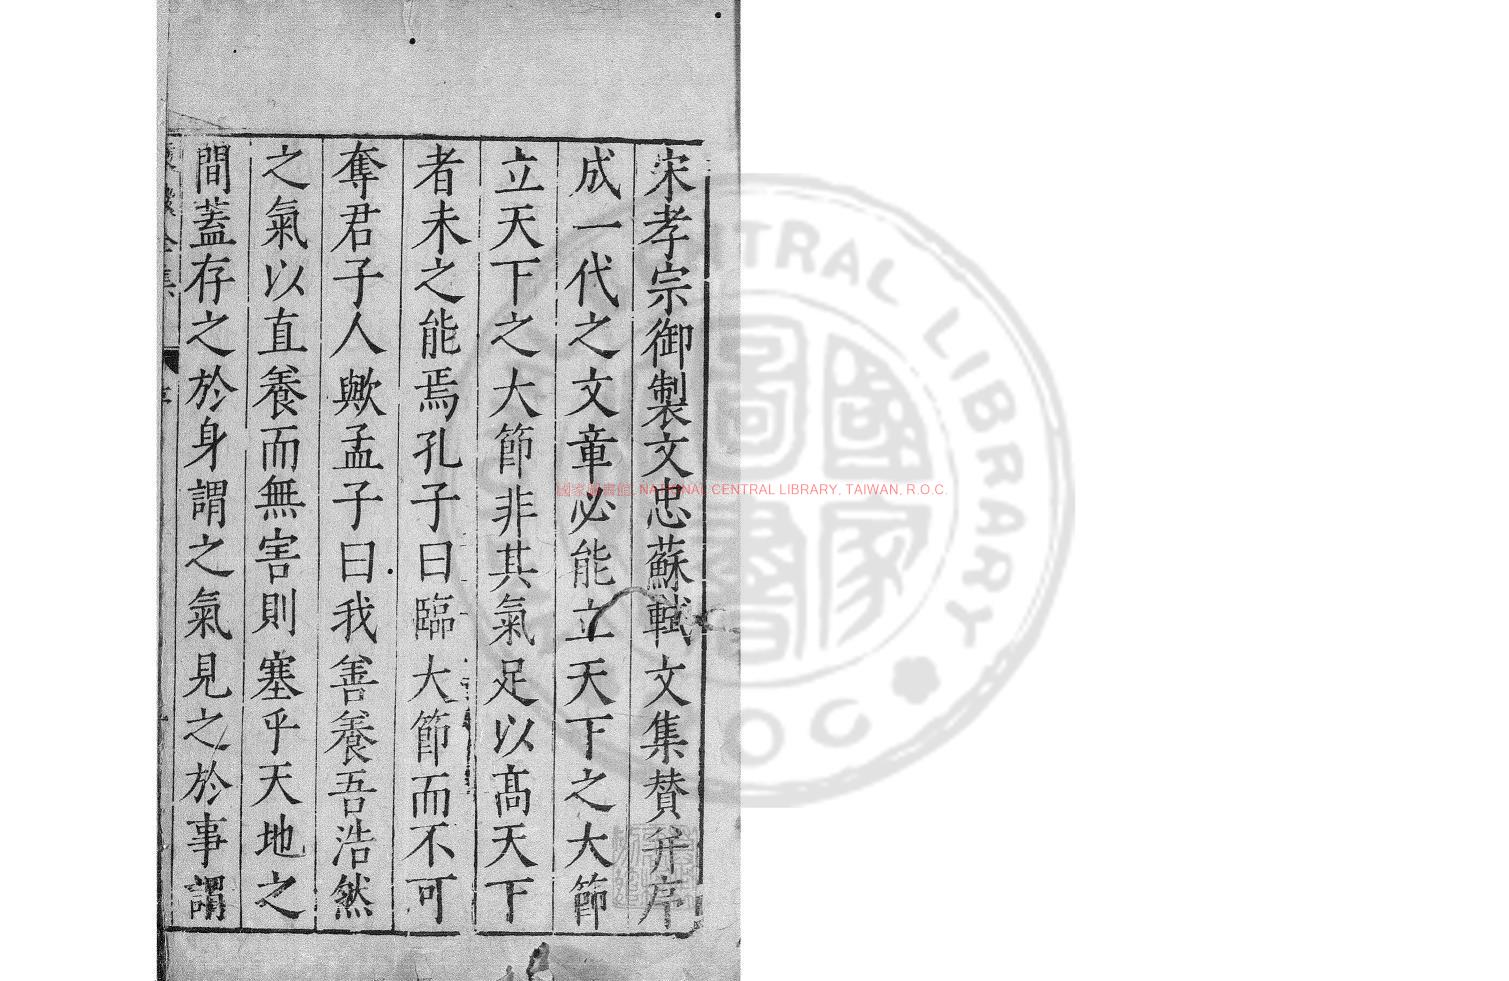 宋孝宗御製文忠蘇軾文集賛并序
成一代之文章必能立天下之大節
立天下之大節非其氣足以髙天下
者未之能焉孔子曰臨大節而不可
奪君子人歟孟子曰我善養吾浩然
之氣以直養而無害則塞乎天地之
間蓋存之於身謂之氣見之於事謂
全集
國家圖書館, NATIONAL CENTRAL LIBRARY, TAIWAN, R.O.C.
CENTRAL LIBRARY
國家圖書